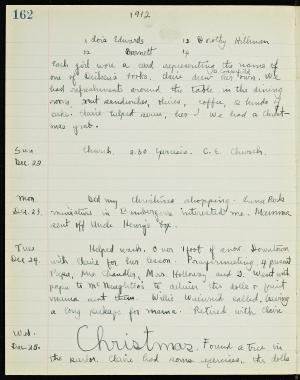 162
1912
1 Lois Edwards 13 Dorothy Hillman
12 Barnett 14
Each girl wore a card representing the name of
one of Dickens's books, Claire drew her own. We
had refreshments around the table in the dining
room, nut sandwiches, olives, coffee, 2 kinds of
cake. Claire helped serve, her We had a Christ-
mas grab.
Sun Church. 2.30 Exercises. C. E. Church.
Dec. 22.
Mon. Did my Christmas shopping.
Dec. 23. in interested me. Mamma
sent off Uncle Henry's box.
Tues Helped wash. Over 1 foot of snow. Downtown
Dec 24. with Claire for her lesson. Prayermeeting 4 present
Papa, Mrs Chandler, Mrs. Holloway and I. Went with
papa to McNaughton's to deliver the dolls & fruit
mama sent them. Willie called, leaving
a long package for mama. Retired with Claire
Wed. Christmas. Found a tree in
Dec 25. the parlor. Claire had some exercises, the dolls